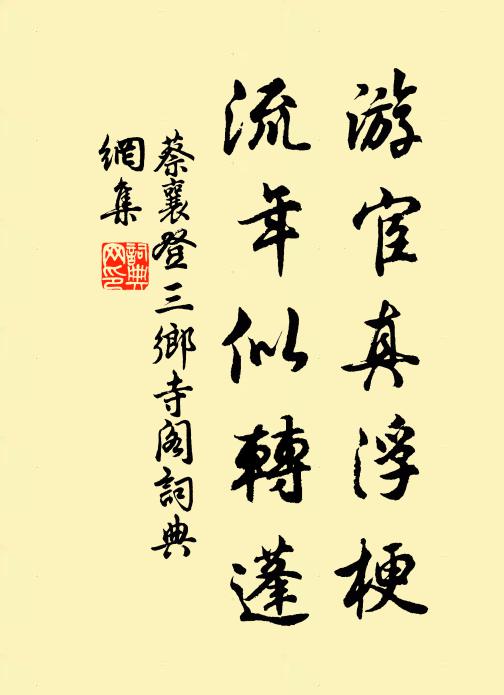 游宦真浮梗
流年似轉蓬
蔡襄登三鄉寺閣詞典
網集
詞典
网印